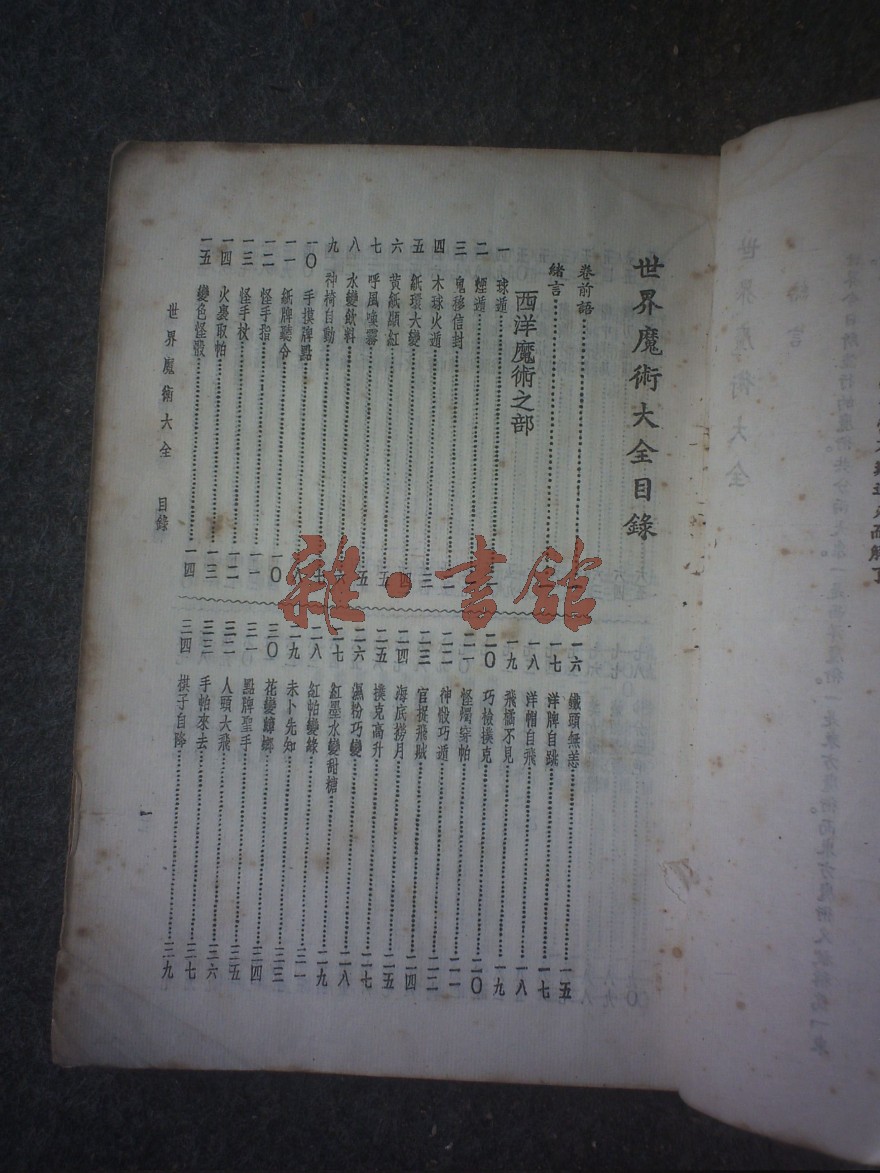 世界魔術大全目錄
卷前語
緒言
西洋魔術之部
一 球遁
二 煙遁
三 鬼移信封
四 木球火遁 三
五 紙環大變 四
六 黃紙顯紅 五
七 呼風喚霧 五
八 水變飲料 六
九 神椅自動 七
一〇 手摸牌點 八
一一 紙牌聽令 一〇
一二 怪手指 一一
一三 怪手杖 一二
一四 火裏取帕 一三
一五 變色怪骰 一四
一六 鐵頭無恙 一五
一七 洋牌自跳 一七
一八 洋帽自飛 一八
一九 飛橘不見 一九
二〇 巧檢撲克 二〇
二一 怪燭穿帕 二一
二二 神骰巧遁 二二
二三 官捉飛賊 二四
二四 海底撈月 二五
二五 撲克高升 二七
二六 濕粉巧變 二八
二七 紅墨水變甜糖 二九
二八 紅帕變綠 三一
二九 未卜先知 三三
三〇 花變蟑螂 三四
三一 點牌聖手 三五
三二 人頭大飛 三六
三三 手帕來去 三七
三四 棋子自降 三九
世界魔術大全 目錄
一
雜·書館
世界魔術大全
緒言